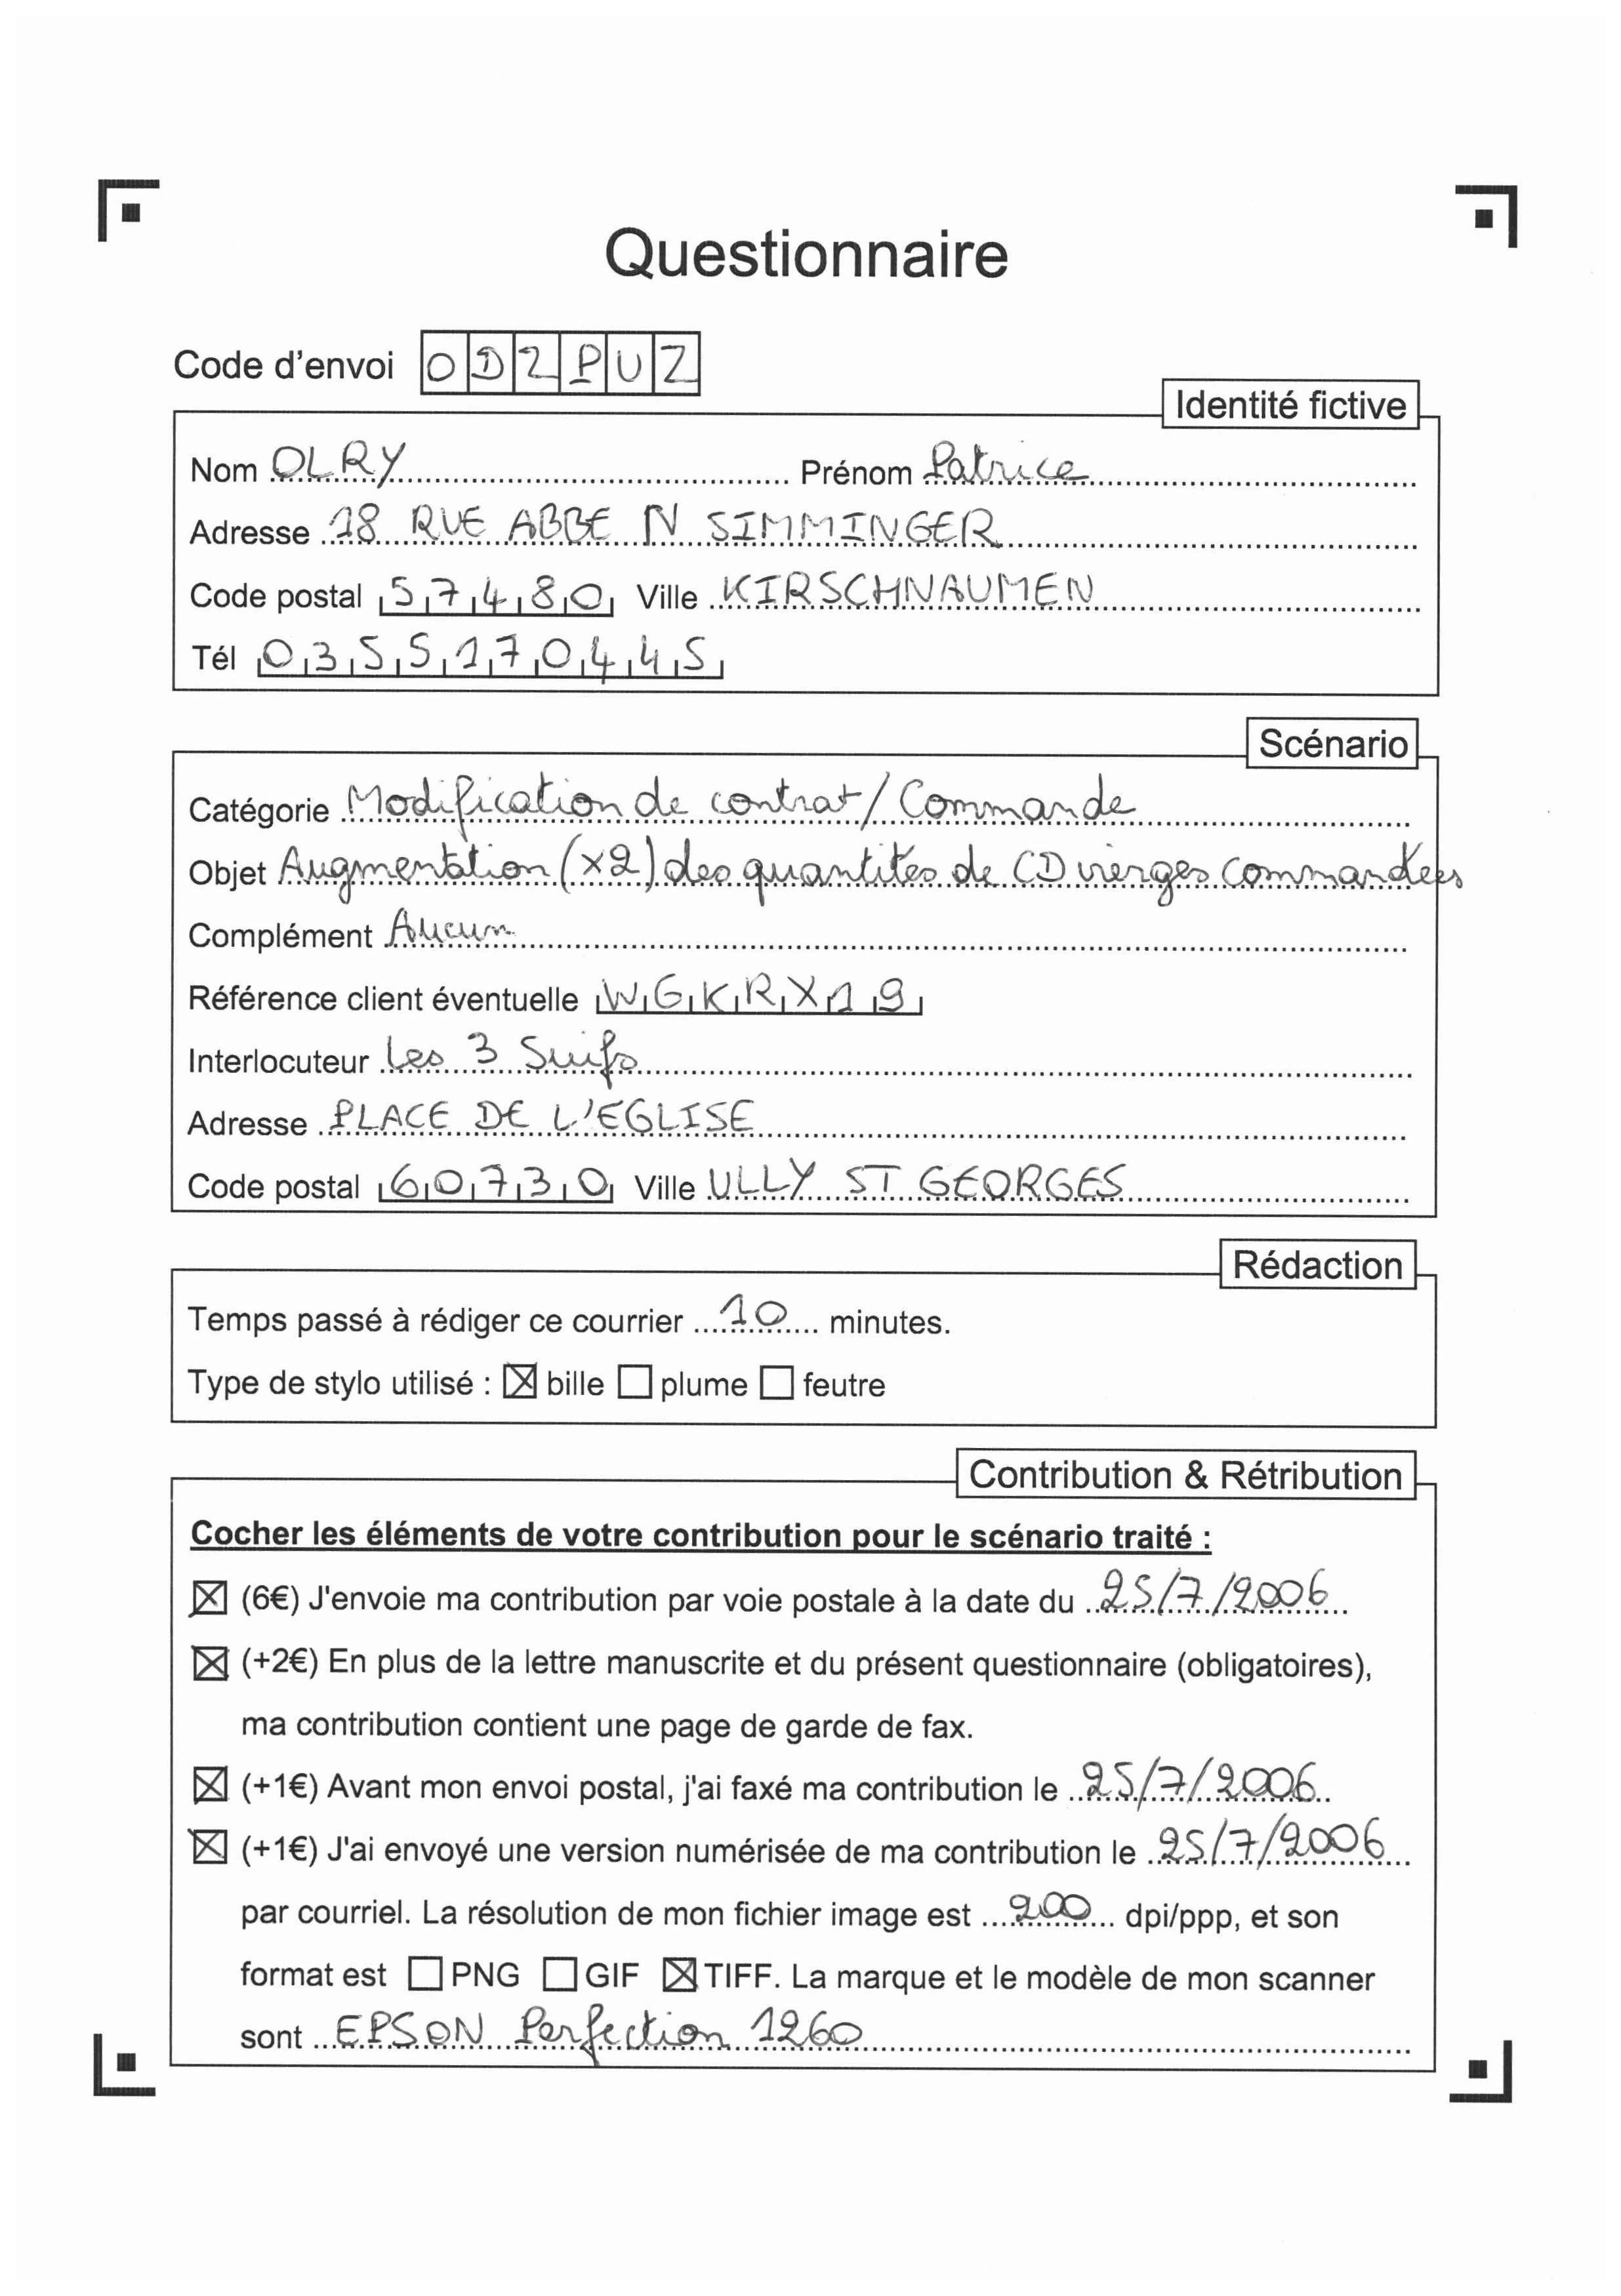 Questionnaire
Code d'envoi ODZPUZ
Identité fictive
Nom OLRY Prénom Patrice
Adresse 18 RUE ABBE N SIMMINGER
Code postal 57480 Ville KIRSCHNAUMEN
Tél 0355170445
Scénario
Catégorie Modification de contrat/Commande
Objet Augmentation (x2) des quantités de CD vierges commandées
Complément Aucun
Référence client éventuelle WGKRX19
Interlocuteur Les 3 Suifs
Adresse PLACE DE L'EGLISE
Code postal 60730 Ville ULLY ST GEORGES
Rédaction
Temps passé à rédiger ce courrier 10 minutes.
Type de stylo utilisé : ☒ bille ☐ plume ☐ feutre
Contribution & Rétribution
Cocher les éléments de votre contribution pour le scénario traité :
☒ (6€) J'envoie ma contribution par voie postale à la date du 25/7/2006
☒ (+2€) En plus de la lettre manuscrite et du présent questionnaire (obligatoires),
ma contribution contient une page de garde de fax.
☒ (+1€) Avant mon envoi postal, j'ai faxé ma contribution le 25/7/2006
☒ (+1€) J'ai envoyé une version numérisée de ma contribution le 25/7/2006
par courriel. La résolution de mon fichier image est 200 dpi/ppp, et son
format est ☐ PNG ☐ GIF ☒ TIFF. La marque et le modèle de mon scanner
sont EPSON Perfection 1260